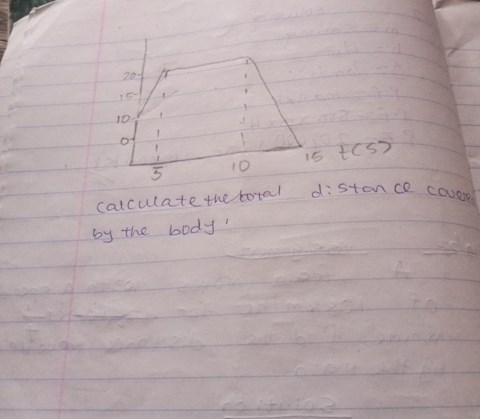 20
15
10
0
5
10
15
t(s)
calculate the total distance covere
by the body